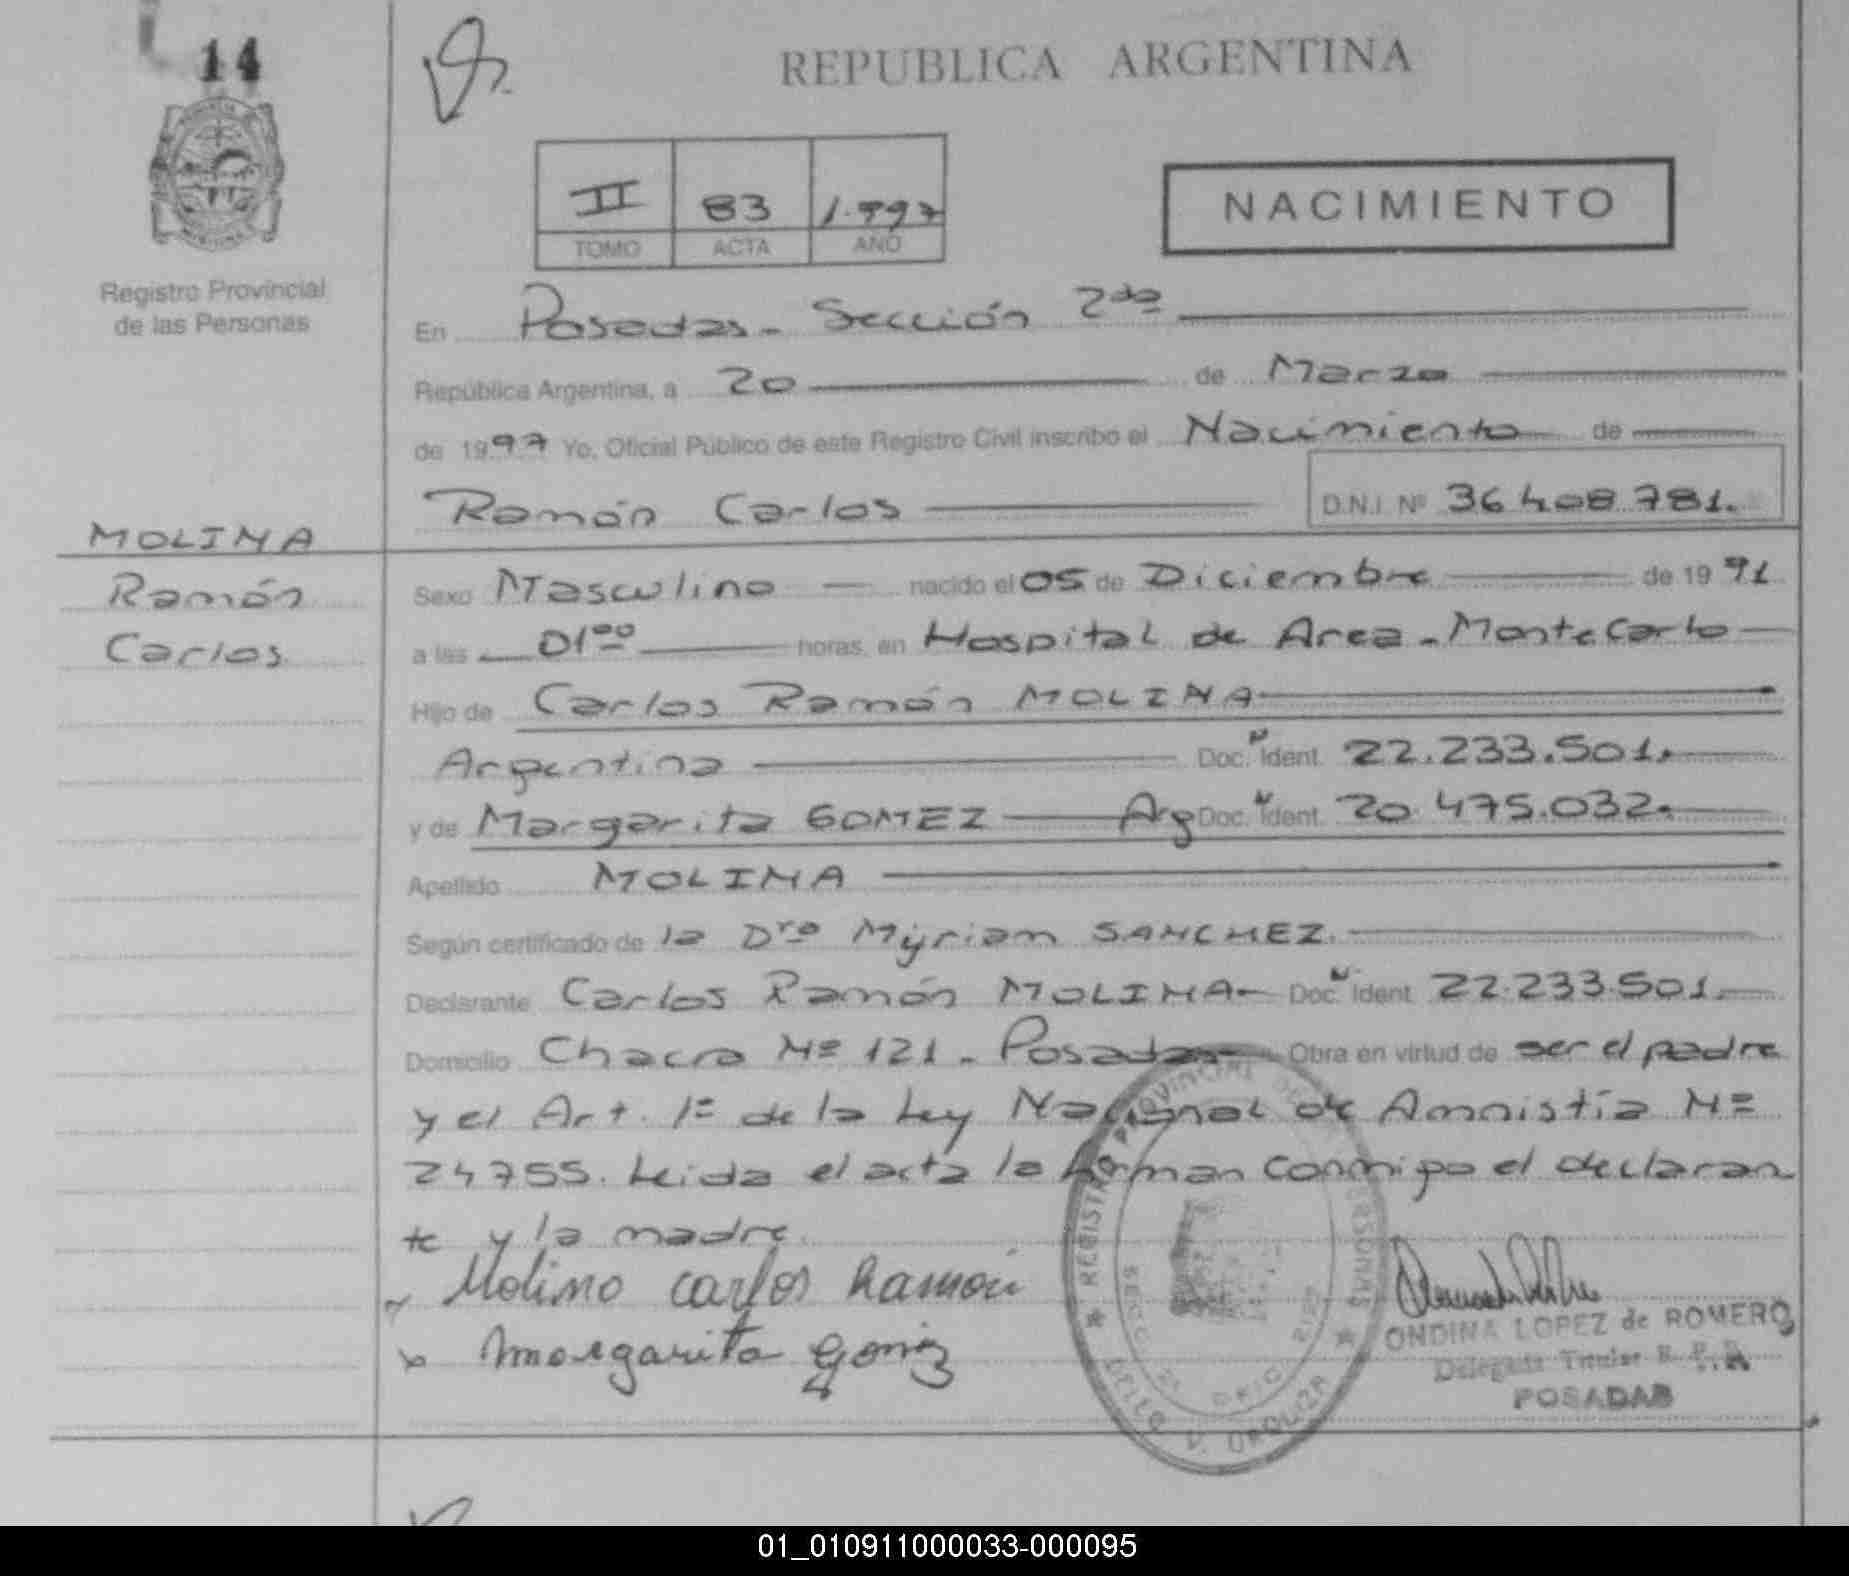 14
REPUBLICA ARGENTINA
II 83 1.997
TOMO ACTA AÑO
NACIMIENTO
Registro Provincial
de las Personas
En Posadas - Sección 2da
República Argentina, a 20 de Marzo
de 1997 Yo, Oficial Público de este Registro Civil inscribo el Nacimiento de
Ramón Carlos D.N.I. Nº 36.408.781.
MOLINA
Ramón
Carlos
Sexo Masculino nacido el 05 de Diciembre de 1991
a las 01ºº horas, en Hospital de Area - MonteCarlo
Hijo de Carlos Ramón MOLINA
Argentina Doc. N Ident. 22.233.501.
y de Margarita GOMEZ Arg Doc. N Ident. 20.475.032.
Apellido MOLINA
Según certificado de la Dra Myrian SANCHEZ.
Declarante Carlos Ramón MOLINA - Doc. N Ident. 22.233.501.
Domicilio Chacra Nº 121 - Posadas - Obra en virtud de ser el padre
y el Art. 1º de la Ley Nacional de Amnistía Nº
24755. Leida el acta la firman conmigo el declaran
te y la madre.
Molino carlos Ramón
x Margarita Gomez
REGISTRO PROVINCIAL DE LAS PERSONAS
URQUIZA
ONDINA LOPEZ de ROMERO
Delegada Titular R. P. P.
POSADAS
01_010911000033-000095